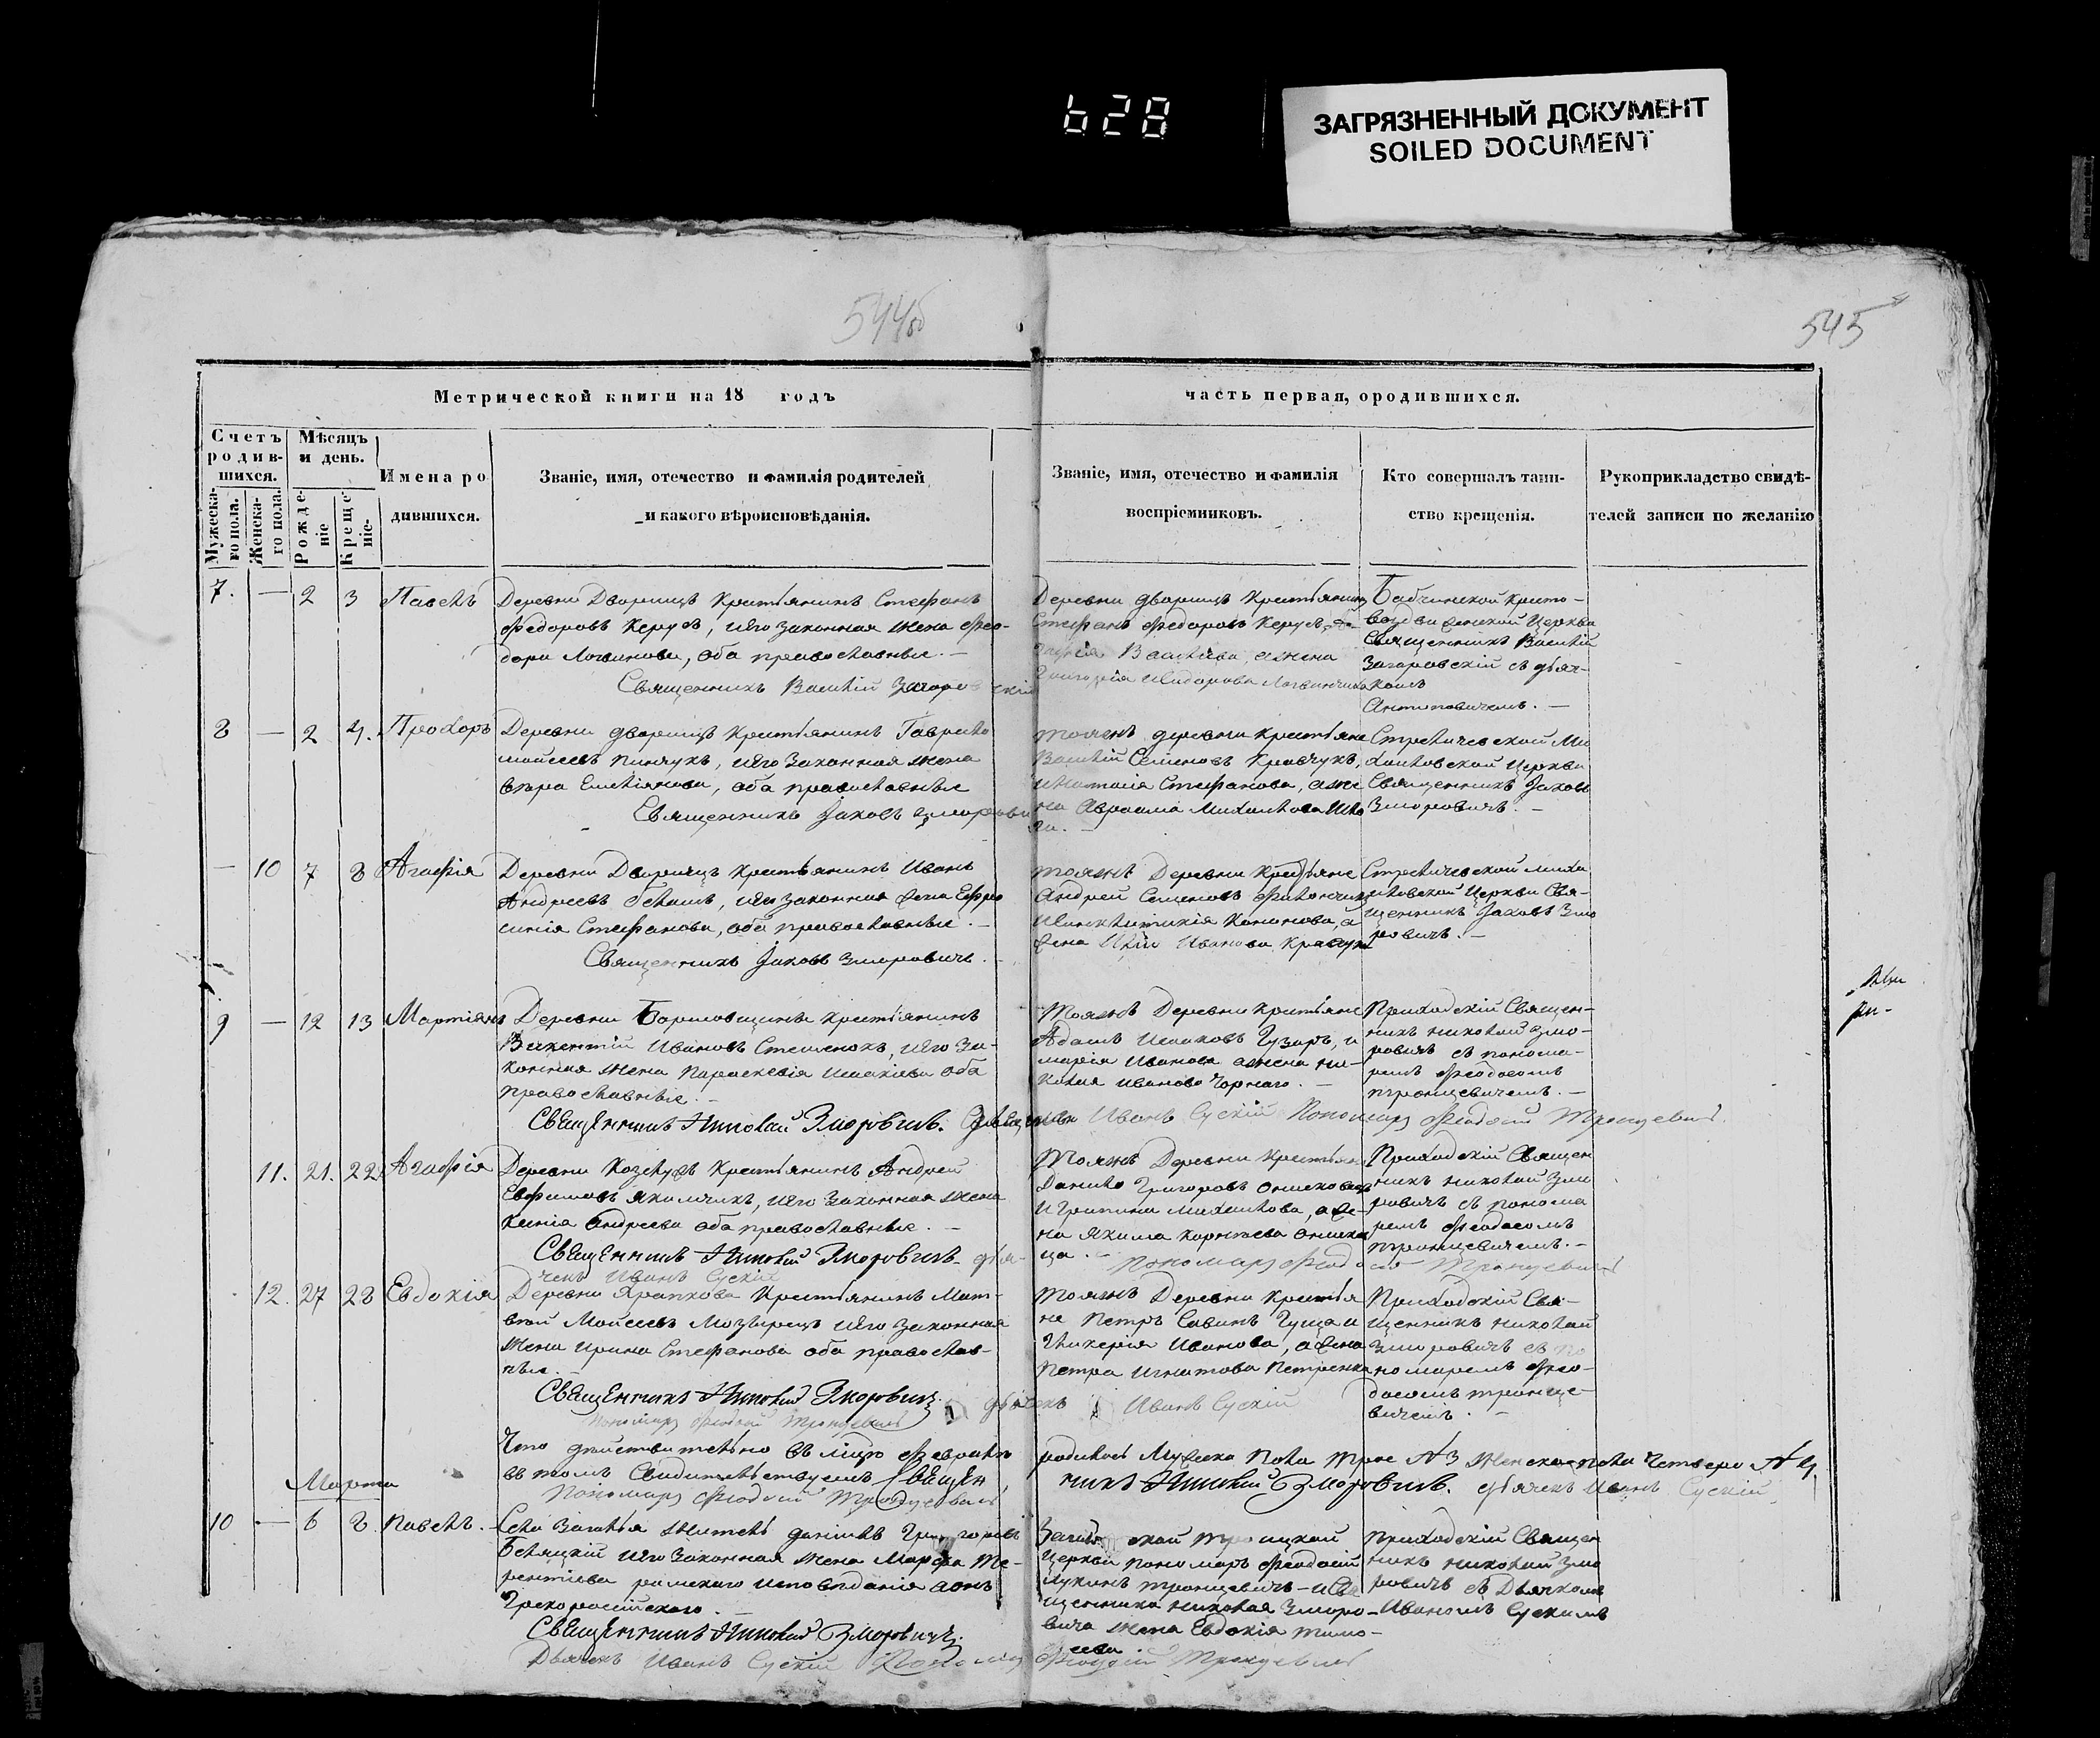 628
ЗАГРЯЗНЕННЫЙ ДОКУМЕНТ
SOILED DOCUMENT
544об
545
Метрической книги на 18 годъ
часть первая, ородившихся.
Счетъ родив-шихся.
Мѣсяцъ и день.
Мужеска-го пола.
Женска-го пола.
Рожде-ніе
Креще-ніе-
Имена ро
дившихся.
Званіе, имя, отечество и фамилія родителей
и какого вѣроисповѣданія.
Званіе, имя, отечество и фамилія
воспріемниковъ.
Кто совершалъ таин-
ство крещенія.
Рукоприкладство свидѣ-
телей записи по желанію
7. — 2 3 Павелъ
Деревни Дворищъ Крестьянинъ Стефанъ
Федоровъ Керусъ, и его законная жена Фео-
дора Логвинова, оба православные. —
Священникъ Василій Загоровскій
Деревни дворищъ Крестьянинъ
Стефанъ Федоровъ Керусъ,
Василіева, а жена
Григорія
Бабчинской Кресто-
воздвиженской Церкви
Священникъ Василій
Загоровскій съ дьяч-
комъ
Антоповичемъ. —
8 — 2 4. Прохоръ
Деревни дворищъ Крестьянинъ Гаврило
Моисеевъ Пинчукъ, и его законная жена
Вѣра Емеліянова, оба православные
Священникъ Јаковъ Зморович
тояжъ деревни Крестьяне
Василій Семеновъ Кравчукъ,
и Наталія Стефанова, а же
на Авраама Михайлова
Стреличевской Ми
хайловской Церкви
Священникъ Јаковъ
Зморовичъ. —
— 10 7 8 Агафія
Деревни Дворищъ Крестьянинъ Иванъ
Андреевъ, и его законная жена Ефро
синія Стефанова, оба православные. —
Священникъ Јаковъ Зморовичъ.
тояжъ Деревни Крестьяне
Андрей Семеновъ
Кононова, а
жена Иванова Кравчука
Стреличевской Миха
йловской Церкви Свя-
щенникъ Јаковъ Змо
ровичъ. —
9 — 12 13 Мартіянъ
Деревни Борисовщины Крестьянинъ
Викентій Ивановъ Стеленокъ, и его за-
конная жена Параскевія Исакіева оба
православные. —
Священникъ Николай Зморовичъ.
Иванъ Сускій Пономарь Феодосій Тронцевичъ
тояжъ Деревни Крестьяне
Адамъ Исаковъ Гузаръ, и
Марія Иванова а жена Ни-
колая Иванова Чорнаго. —
Приходскій Священ-
никъ Николай Змо-
ровичъ съ понома-
ремъ Феодосомъ
Тронцевичемъ. —
11. 21. 22 Агафія
Деревни Козелужъ Крестьянинъ Андрей
Евфимовъ Якимчикъ, и его законная жена
Ксенія Андреева оба православные. —
Священникъ Николай Зморовичъ. дья-
чекъ Иванъ Сускій
тояжъ Деревни Крестьяне
Данило Григоровъ
и Грипина Михайлова, а же-
на Якима
ца. —
Пономарь Феодосій Тронцевичъ
Приходскій Священ
никъ Николай Змо
ровичъ съ понома
ремъ Феодосомъ
Тронцевичемъ. —
12. 27 28 Евдокія
Деревни Храпкова Крестьянинъ Мат-
вей Моисеевъ Мозырецъ и его законная
жена Ирина Стефанова оба православ-
ные. —
Священникъ Николай Зморовичъ
дьячекъ Иванъ Сускій
Пономарь Феодосій Тронцевичъ
тояжъ Деревни Крестья
не Петръ Савинъ Гуща и
Гликерія Иванова, а жена
Петра Игнатова Петренка
Приходскій Свя-
щенникъ Николай
Зморовичъ съ по
номаремъ Фео-
досомъ Тронце-
вичемъ. —
Что дѣйствительно въ мцѣ Февралѣ родилось Мужеска пола трое №3 Женска пола четверо №4
въ томъ Свидетельствуемъ Священникъ Николай Зморовичъ. Дьячекъ Иванъ Сускій
Пономарь Феодосій Тронцевичъ
Марта
10 — 6 8 Павелъ.
Села Загалья житель Даніилъ Григоровъ
Бѣляцкій и его законная жена Марфа Те-
рентіева римскаго исповѣданія а онъ
Грекороссійскаго. —
Священникъ Николай Зморовичъ.
Дьячекъ Иванъ Сускій Пономарь Феодосій Тронцевичъ
Загальской Троицкой
Церкви пономарь Феодосій
Лукинъ Тронцевичъ — и Свя
щенника Николая Зморо-
вича жена Евдокія Тимо-
феева
Приходскій Священ
никъ Николай Змо
ровичъ съ Дьячкомъ
Иваномъ Сускимъ